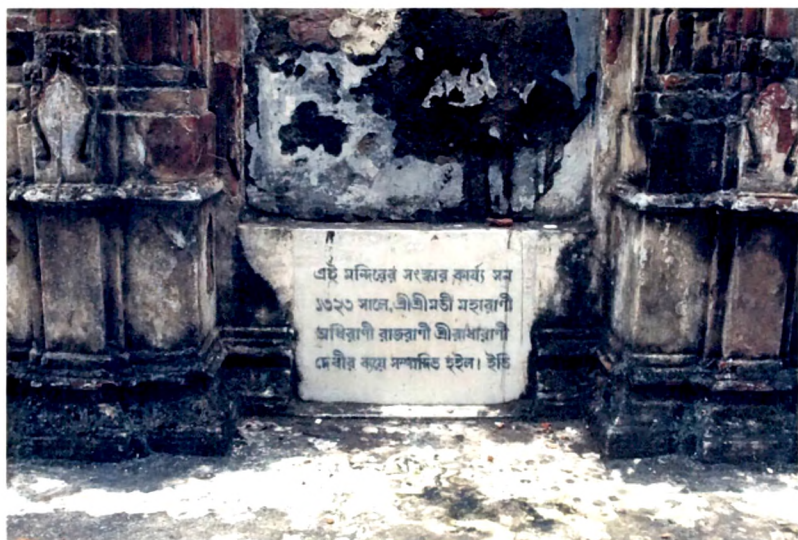 এই মন্দিরের সংস্কার কার্য্য সন
১৩২৩ সালে, শ্রীশ্রীমতী মহারাণী
অধিরাণী রাজরাণী শ্রীরাধারাণী
দেবীর ব্যয়ে সম্পাদিত হইল। ইতি